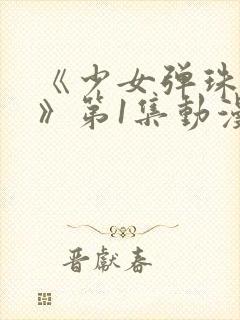 《少女弹珠
》第1集動漫
晋獻春